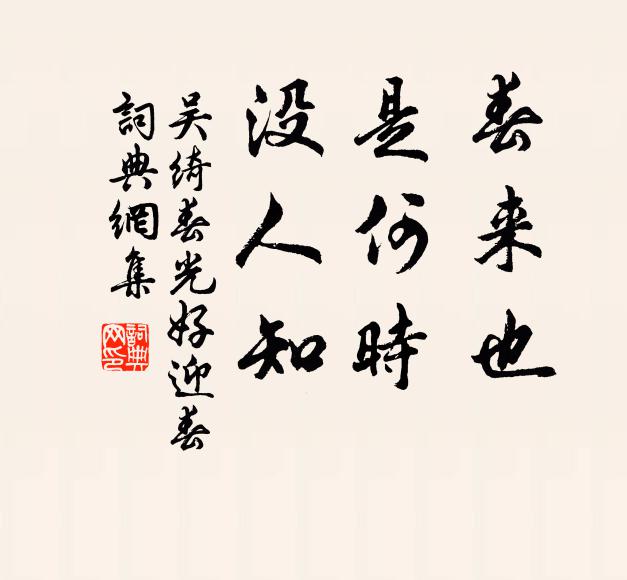 春来也
是何時
没人知
吴綺春光好迎春
詞典網集
詞典
网印